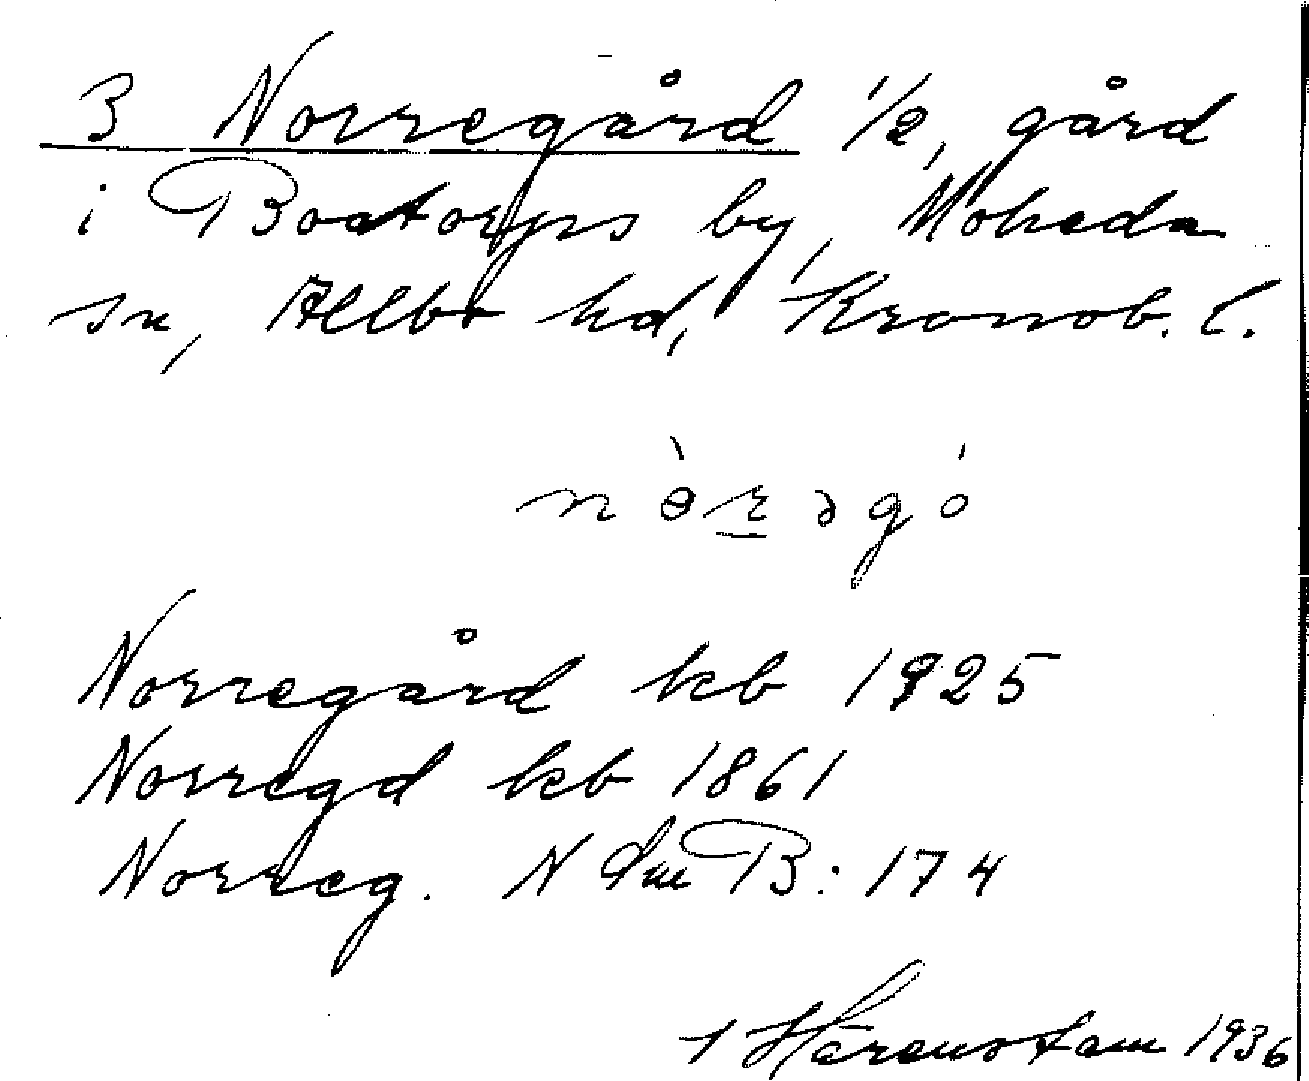 3 Norregård 1/2, gård
i Boatorps by, Moheda
sn, Allbo hd, Kronob. l.
Norregård kb 1925
Norregd kb 1861
Norreg. N Sm B: 174
Härenstam 1936